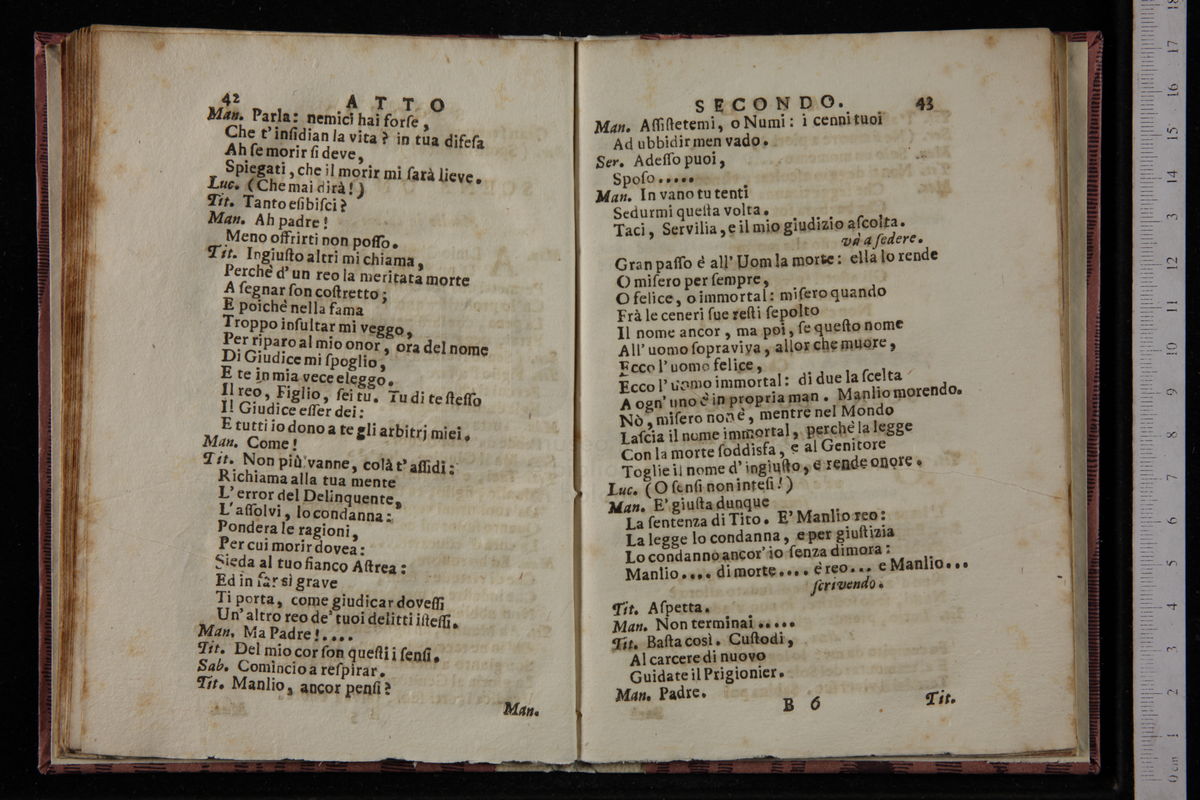 42 ATTO
Man. Parla: nemici hai forſe,
Che t' inſidian la vita? in tua difeſa
Ah ſe morir ſi deve,
Spiegati, che il morir mi ſarà lieve.
Luc. (Che mai dirà!)
Tit. Tanto eſibiſci?
Man. Ah padre!
Meno offrirti non poſſo.
Tit. Ingiuſto altri mi chiama,
Perchè d' un reo la meritata morte
A ſegnar ſon coſtretto;
E poichè nella fama
Troppo inſultar mi veggo,
Per riparo al mio onor, ora del nome
Di Giudice mi ſpoglio,
E te in mia vece eleggo.
Il reo, Figlio, ſei tu. Tu di te ſteſſo
Il Giudice eſſer dei:
E tutti io dono a te gli arbitrj miei.
Man. Come!
Tit. Non più: vanne, colà t' aſſidi:
Richiama alla tua mente
L' error del Delinquente,
L' aſſolvi, lo condanna:
Pondera le ragioni,
Per cui morir dovea:
Sieda al tuo fianco Aſtrea:
Ed in far sì grave
Ti porta, come giudicar doveſſi
Un' altro reo de' tuoi delitti iſteſſi.
Man. Ma Padre!....
Tit. Del mio cor ſon queſti i ſenſi.
Sab. Comincio a reſpirar.
Tit. Manlio, ancor penſi?
Man.
SECONDO. 43
Man. Aſſiſtetemi, o Numi: i cenni tuoi
Ad ubbidir men vado.
Ser. Adeſſo puoi,
Spoſo.....
Man. In vano tu tenti
Sedurmi queſta volta.
Taci, Servilia, e il mio giudizio aſcolta.
và a ſedere.
Gran paſſo è all' Uom la morte: ella lo rende
O miſero per ſempre,
O felice, o immortal: miſero quando
Frà le ceneri ſue reſti ſepolto
Il nome ancor, ma poi, ſe queſto nome
All' uomo ſopraviva, allor che muore,
Ecco l' uomo felice,
Ecco l' uomo immortal: di due la ſcelta
A ogn' uno è in propria man. Manlio morendo.
Nò, miſero non è, mentre nel Mondo
Laſcia il nome immortal, perchè la legge
Con la morte ſoddisfa, e al Genitore
Toglie il nome d' ingiuſto, e rende onore.
Luc. (O ſenſi non inteſi!)
Man. E' giuſta dunque
La ſentenza di Tito. E' Manlio reo:
La legge lo condanna, e per giuſtizia
Lo condanno ancor' io ſenza dimora:
Manlio.... di morte.... è reo... e Manlio...
ſcrivendo.
Tit. Aſpetta.
Man. Non terminai.....
Tit. Baſta così. Cuſtodi,
Al carcere di nuovo
Guidate il Prigionier.
Man. Padre.
B 6 Tit.